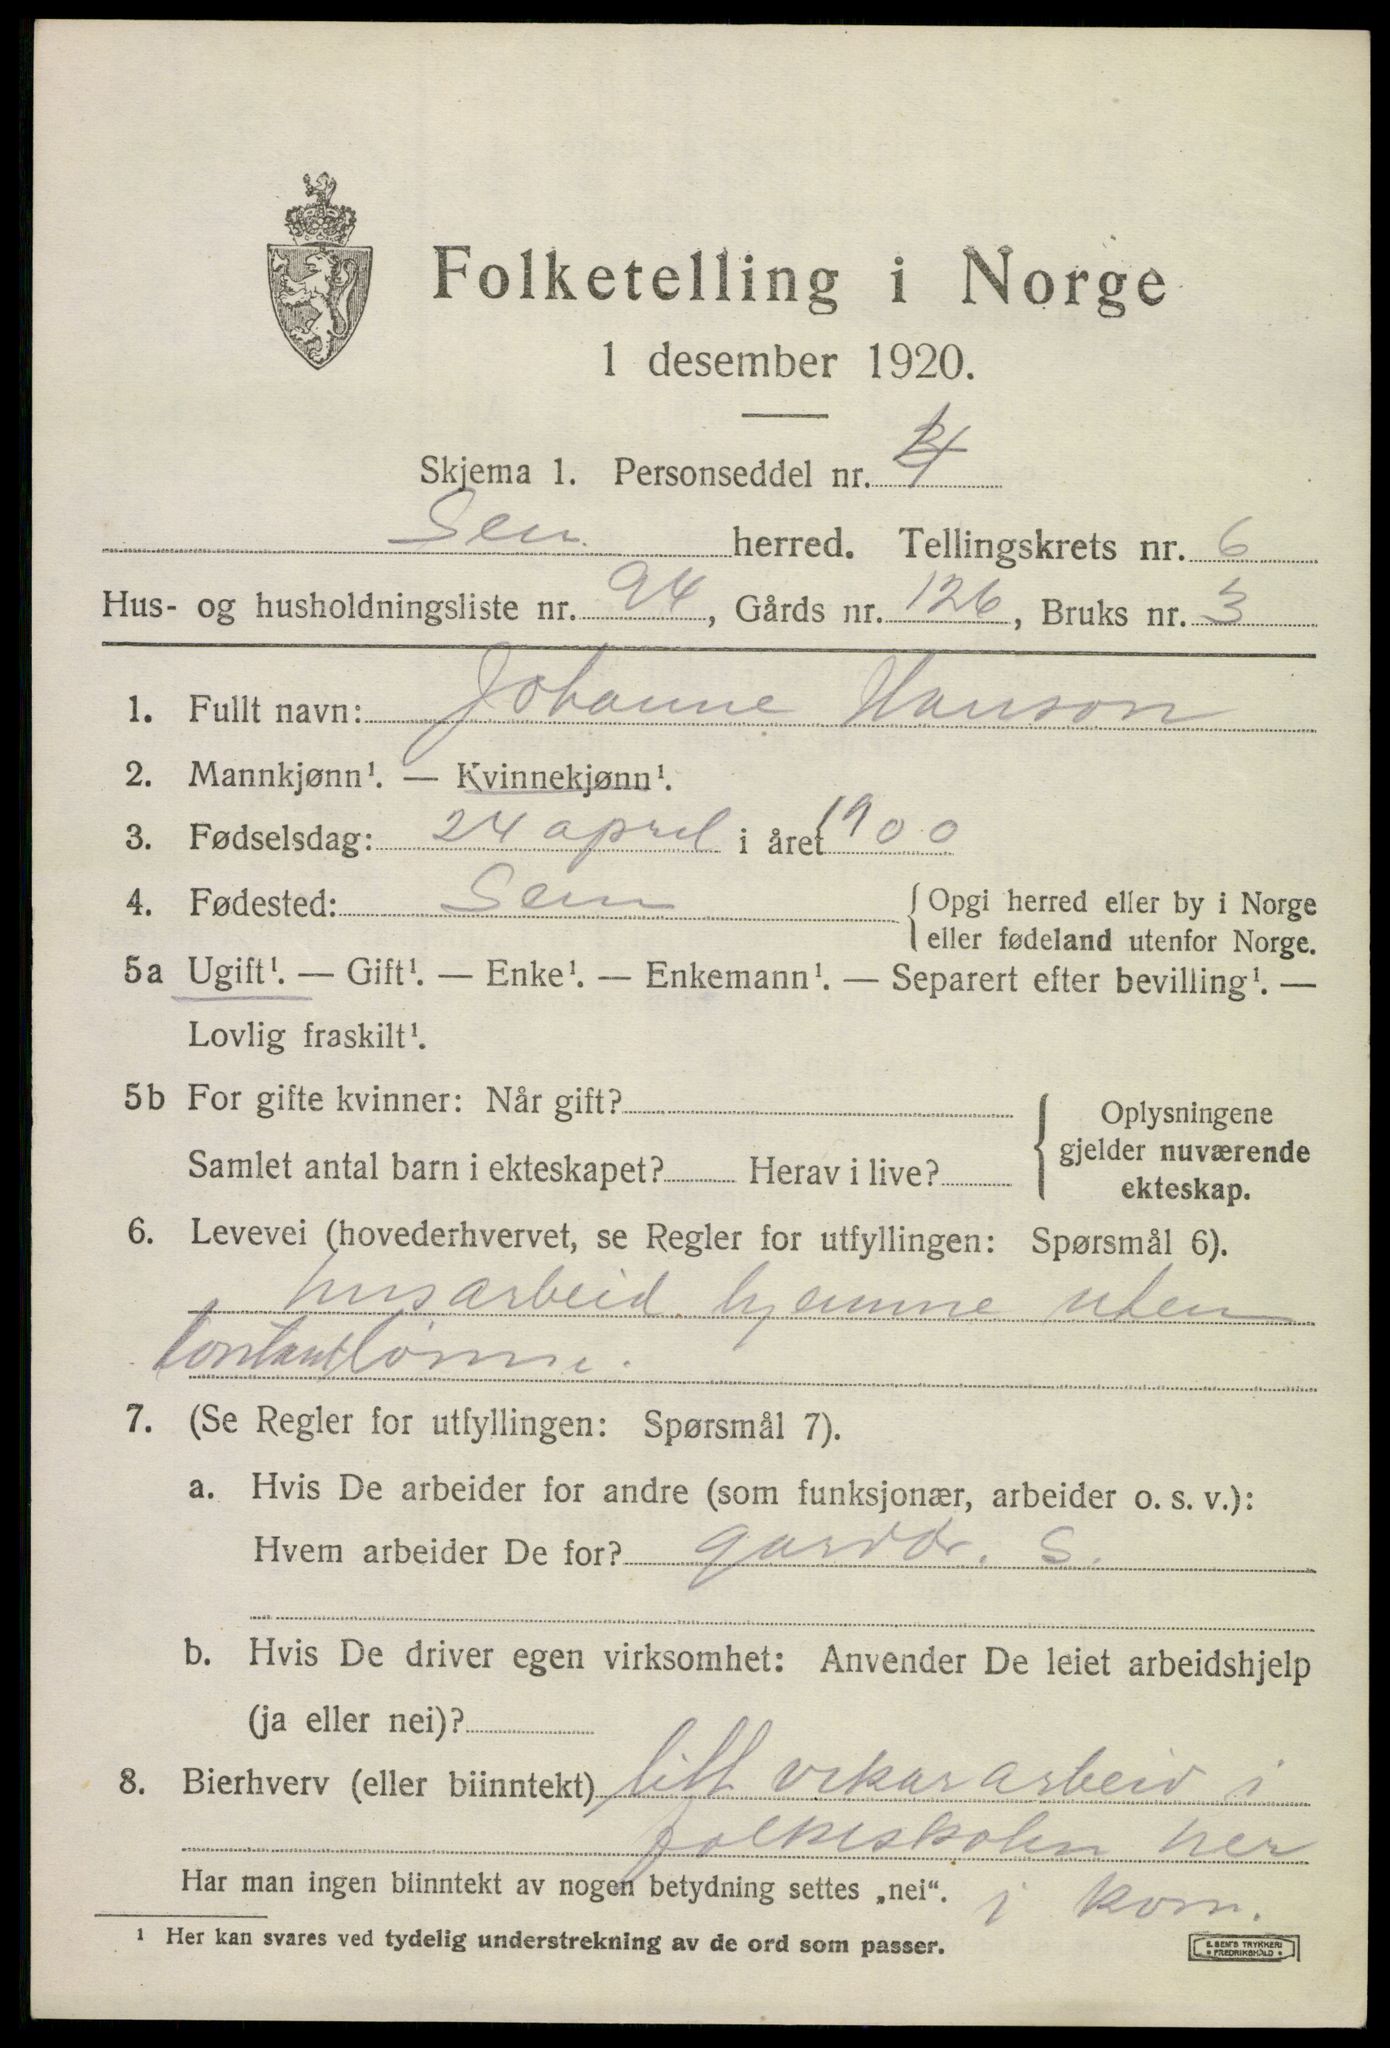 Folketelling i Norge
1 desember 1920.
Skjema 1. Personseddel nr. 4
Sem herred. Tellingskrets nr. 6
Hus- og husholdningsliste nr. 94, Gårds nr. 126, Bruks nr. 3
1. Fullt navn: Johanne Hanson
2. Mannkjønn¹. — Kvinnekjønn¹.
3. Fødselsdag: 24 april i året 1900
4. Fødested: Sem { Opgi herred eller by i Norge
eller fødeland utenfor Norge.
5a Ugift¹. — Gift¹. — Enke¹. — Enkemann¹. — Separert efter bevilling¹. —
Lovlig fraskilt¹.
5b For gifte kvinner: Når gift?
Samlet antal barn i ekteskapet? Herav i live?
Oplysningene
gjelder nuværende
ekteskap.
6. Levevei (hovederhvervet, se Regler for utfyllingen: Spørsmål 6).
husarbeid hjemme uten
kontantlønn.
7. (Se Regler for utfyllingen: Spørsmål 7).
a. Hvis De arbeider for andre (som funksjonær, arbeider o. s. v.):
Hvem arbeider De for? gardbr. S.
b. Hvis De driver egen virksomhet: Anvender De leiet arbeidshjelp
(ja eller nei)?
8. Bierhverv (eller biinntekt) litt vikararbeid i
folkeskolen her
Har man ingen biinntekt av nogen betydning settes „nei“. i kom.
¹ Her kan svares ved tydelig understrekning av de ord som passer.
E. SEM'S TRYKKERI
• FREDRIKSHALD •